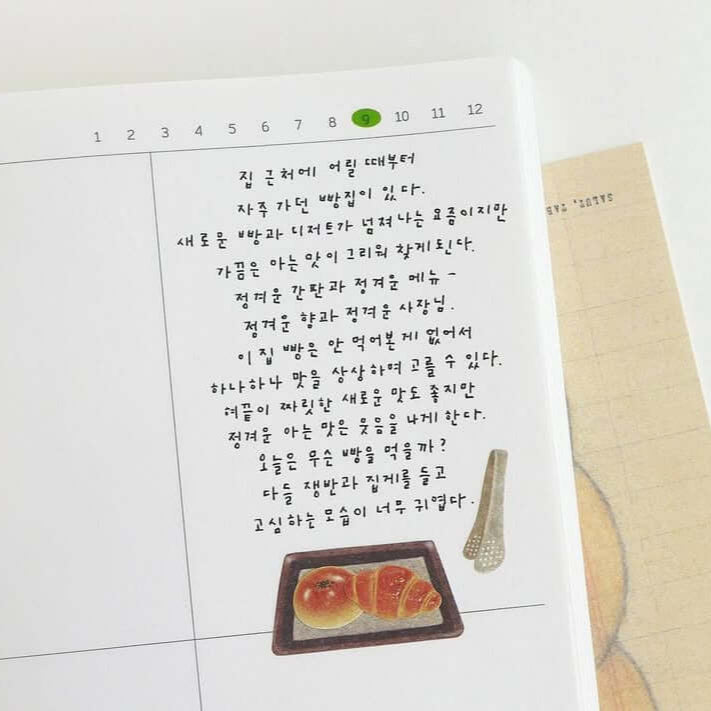 1 2 3 4 5 6 7 8 9 10 11 12
집 근처에 어릴 때부터
자주 가던 빵집이 있다.
새로운 빵과 디저트가 넘쳐나는 요즘이지만
가끔은 아는 맛이 그리워 찾게된다.
정겨운 간판과 정겨운 메뉴-
정겨운 향과 정겨운 사장님.
이 집 빵은 안 먹어본게 없어서
하나하나 맛을 상상하며 고를 수 있다.
혀끝이 짜릿한 새로운 맛도 좋지만
정겨운 아는 맛은 웃음을 나게 한다.
오늘은 무슨 빵을 먹을까?
다들 쟁반과 집게를 들고
고심하는 모습이 너무 귀엽다.
SALUT, TAB